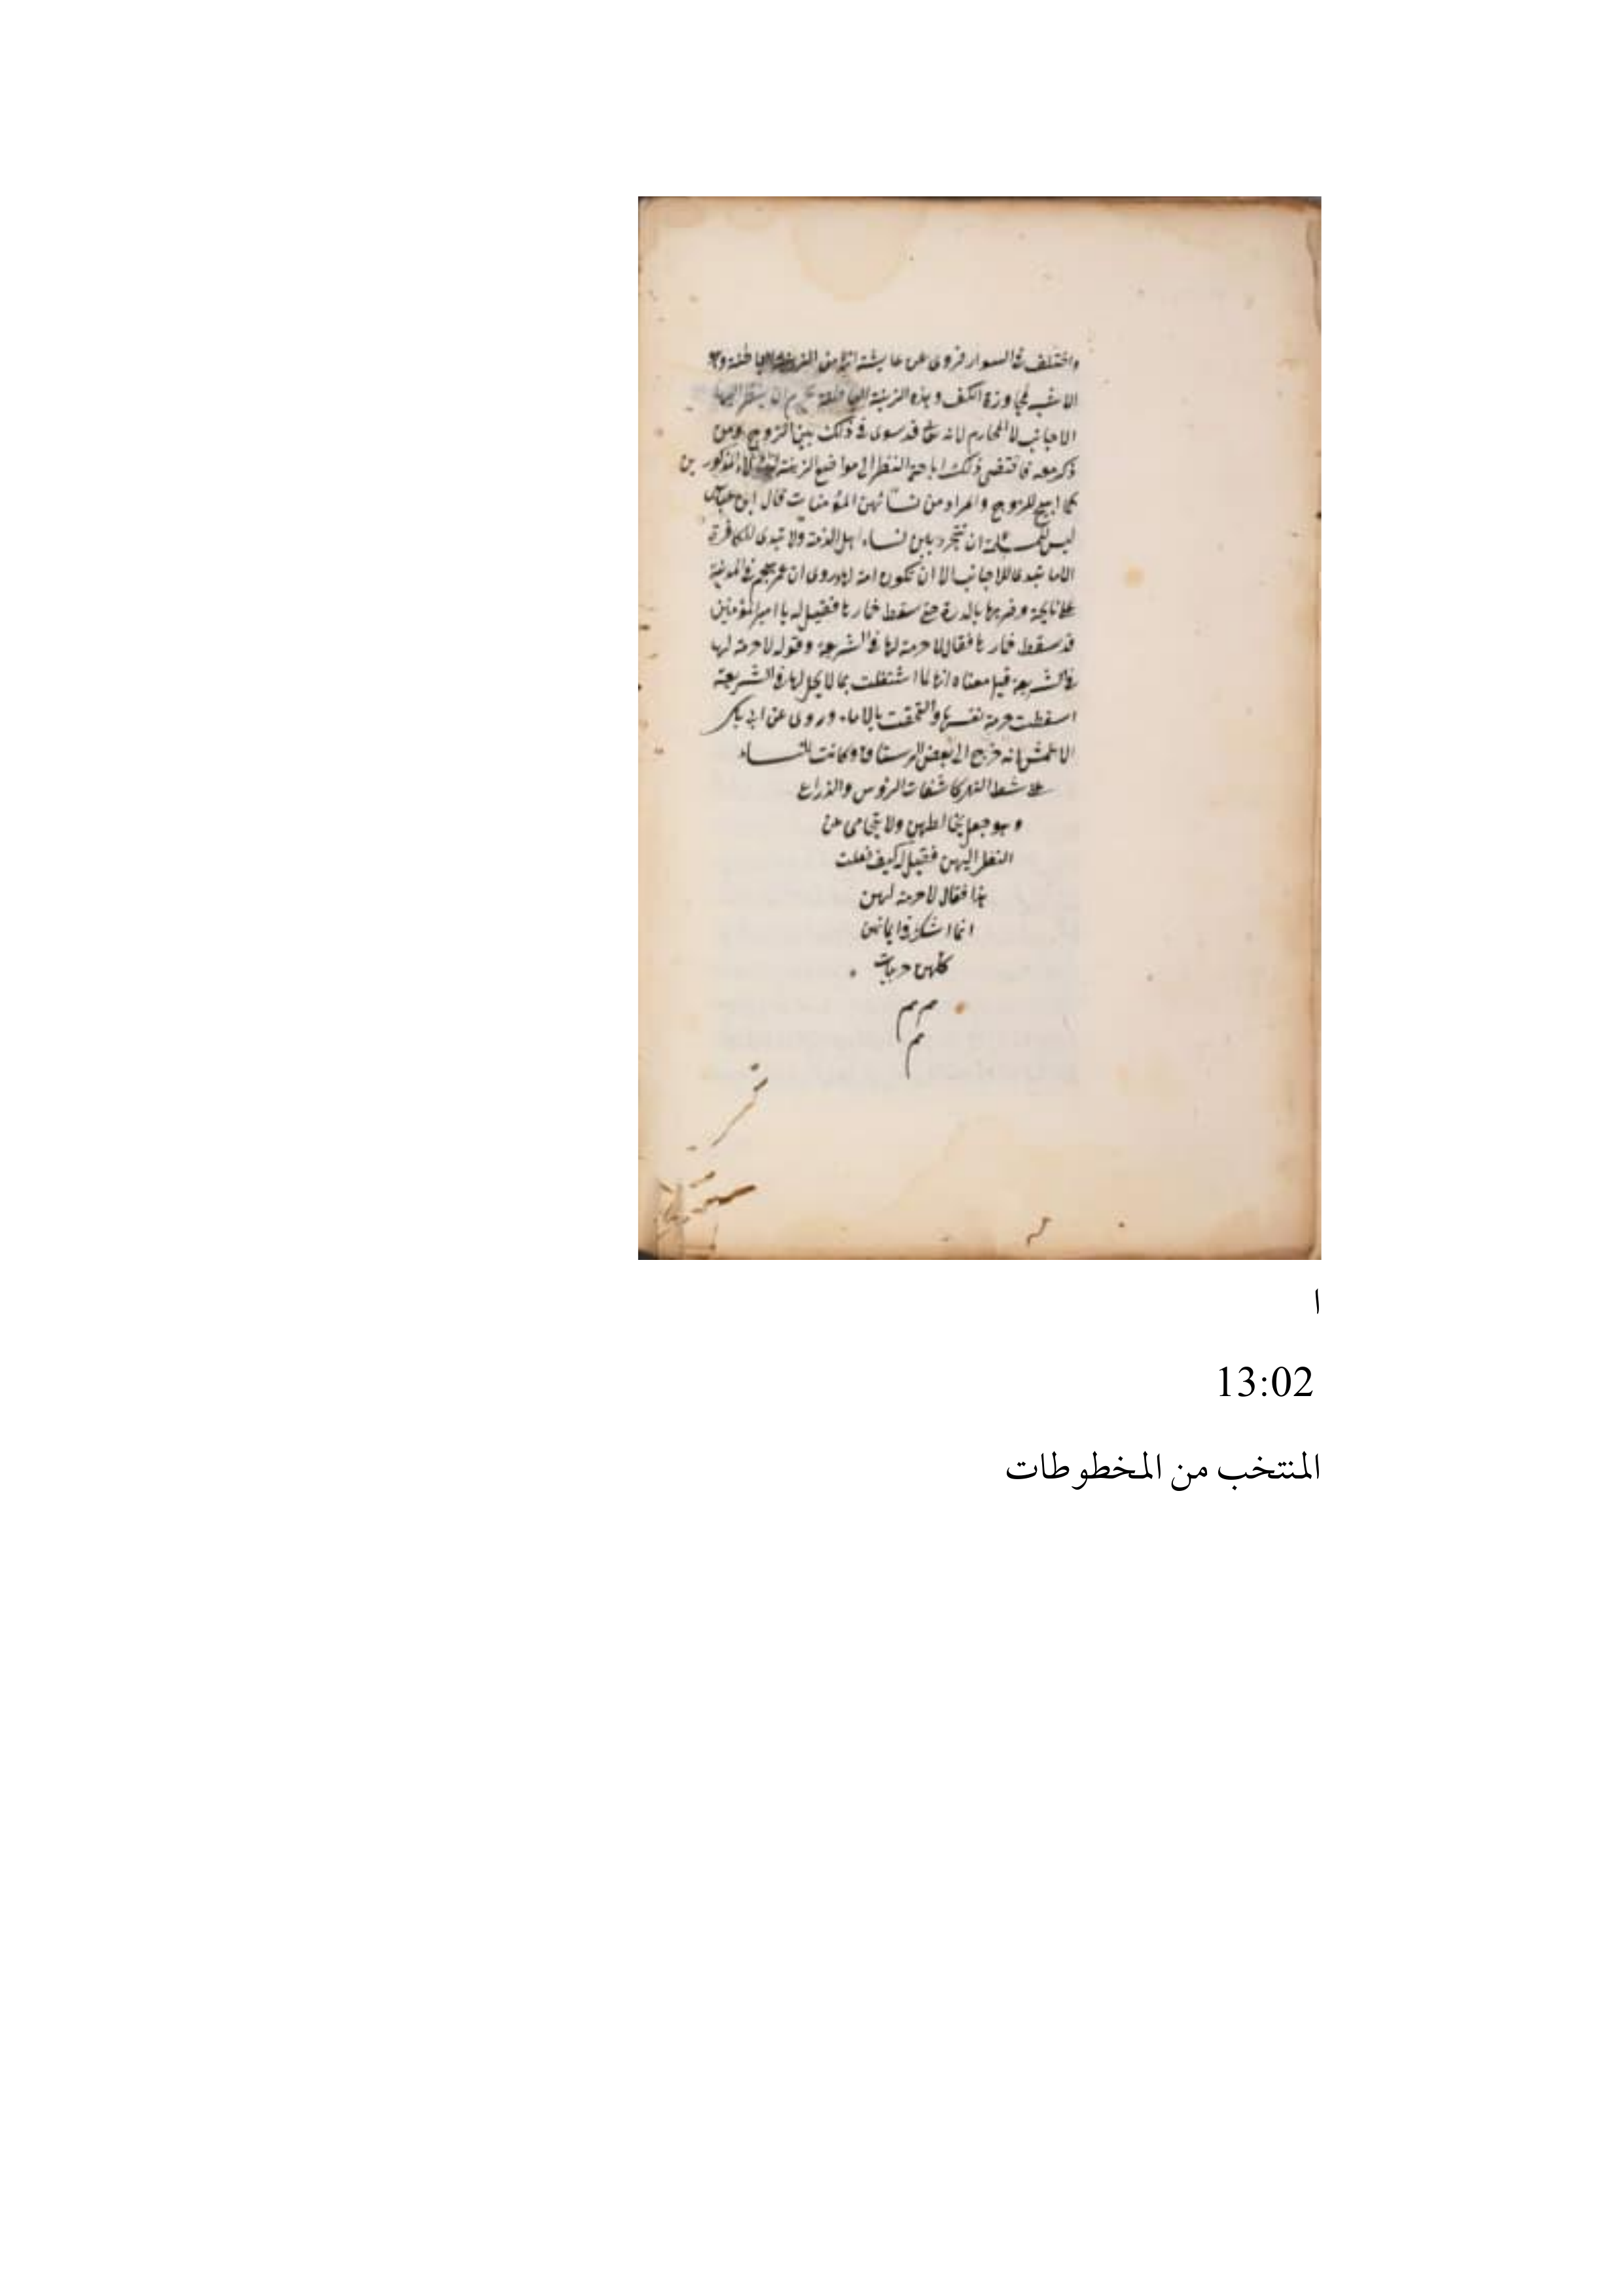 واختلف في السوار فروى عن عايشة انها من الزينة الباطنة وهو
الاشبه لمجاوزة الكف وهذه الزينة الباطنة يحرم ان ينظر اليها
الاجانب لا المحارم لانه تع قد سوى في ذلك بين الزوج ومن
ذكر معه فاقتضى ذلك اباحة النظر الى مواضع الزينة المذكورين
كما ابيح للزوج والمراد من نسائهن المؤمنات قال ابن عباس
ليس لمسلمة ان تتجرد بين نساء اهل الذمة ولا تبدى للكافرة
الا ما تبدى للاجانب الا ان تكون امة لها وروى ان عمر هجم في المدينة
على نايحة وضربها بالدرة حتى سقط خمارها فقيل له يا امير المؤمنين
قد سقط خمارها فقال لا حرمة لها في الشريعة وقوله لا حرمة لها
في الشريعة قيل معناه انها لما اشتغلت بما لا يحل لها في الشريعة
اسقطت حرمة نفسها والتحقت بالاماء وروى عن ابى بكر
الاعمش انه خرج الى بعض الرستاق وكانت النساء
على شط النهر كاشفات الرؤس والذراع
وهو جعل يخالطهن ولا يتحامى عن
النظر اليهن فقيل له كيف فعلت
هذا فقال لا حرمة لهن
انما اشك في ايمانهن
كانهن حربيات
مم
م
ا
13:02
المنتخب من المخطوطات